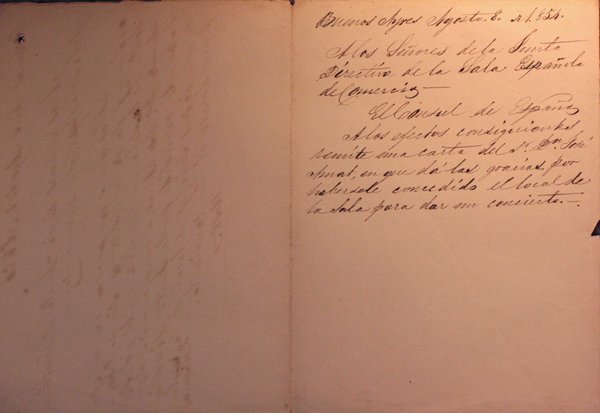 Buenos Ayres Agosto. 8. 1.854.
A los Señores de la Junta
Directiva de la Sala Española
de Comercio—
El Cónsul de España
A los efectos consiguientes
remite una carta del Sr. Dn. José
Amat, en que dá las gracias, por
habersele concedido el local de
la Sala para dar un concierto.—